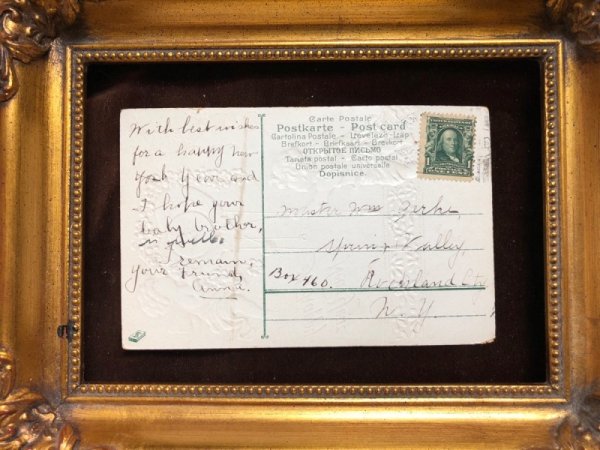 With best wishes
for a happy new
Year and
I hope your
baby brother,
is well.
I remain,
your Friend,
Anna.
Carte Postale
Postkarte - Post card
Cartolina Postale - Levelező-Lap
Brefkort - Briefkaart - Brevkort
ОТКРЫТОЕ ПИСЬМО
Tarjeta postal - Carto postal
Union postale universelle
Dopisnice.
1
Master Wm
Spring Valley,
Box 460. Rockland Co.
N.Y.